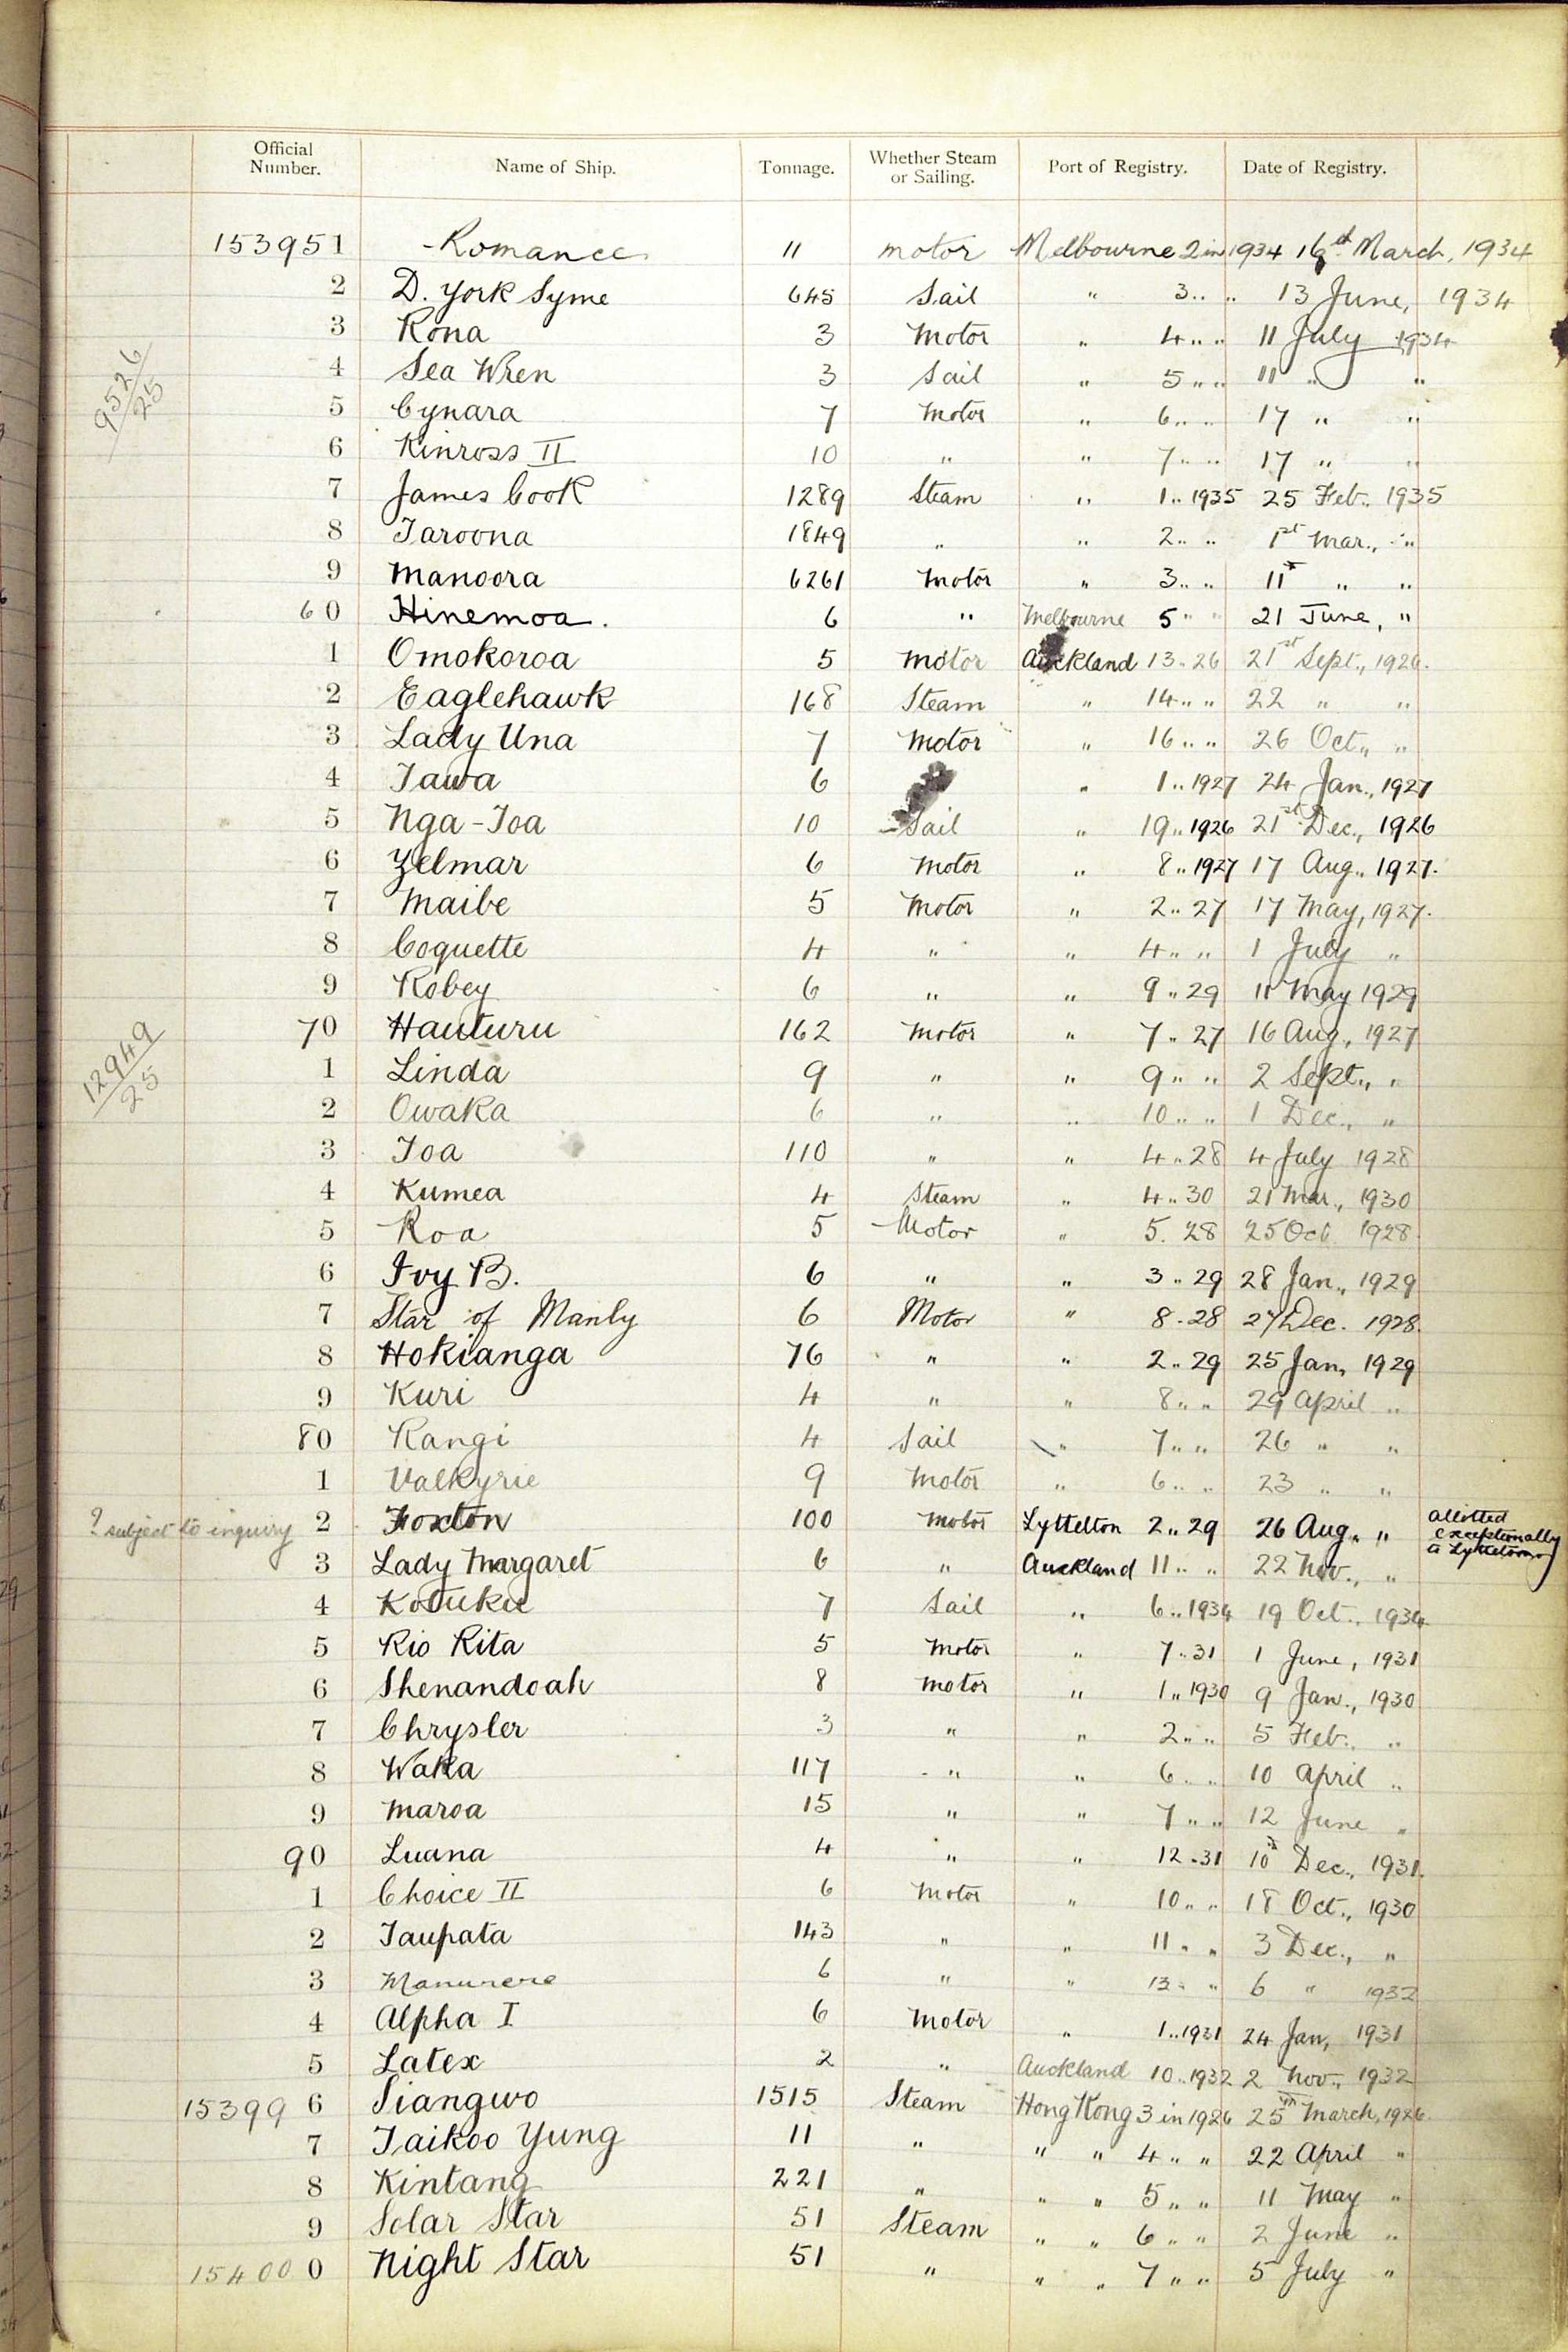 Official Number. Name of Ship. Tonnage. Whether Steam or Sailing. Port of Registry. Date of Registry.
153951 Romance 11 motor Melbourne 2 in 1934 16 March, 1934
2 D. York Syme 645 Sail " 3 " " 13 June, 1934
3 Rona 3 Motor " 4 " " 11 July 1934
9526/25
4 Sea Wren 3 Sail " 5 " " 11 " "
5 Cynara 7 Motor " 6 " " 17 " "
6 Kinross II 10 " " 7 " " 17 " "
7 James Cook 1289 Steam " 1 " 1935 25 Feb., 1935
8 Taroona 1849 " " 2 " " 1st Mar., "
9 Manoora 6261 Motor " 3 " " 11 " "
60 Hinemoa. 6 " Melbourne 5 " " 21 June, "
1 Omokoroa 5 motor Auckland 13 " 26 21st Sept., 1926.
2 Eaglehawk 168 Steam " 14 " " 22 " "
3 Lady Una 7 Motor " 16 " " 26 Oct., "
4 Tawa 6 " 1 " 1927 24 Jan., 1927
5 Nga-Toa 10 Sail " 19 " 1926 21st Dec., 1926
6 Zelmar 6 Motor " 8 " 1927 17 Aug., 1927.
7 Maibe 5 Motor " 2 " 27 17 May, 1927.
8 Coquette 4 " " 4 " " 1 July "
9 Robey 6 " " 9 " 29 11 May 1929
70 Hauturu 162 Motor " 7 " 27 16 Aug., 1927
12949/25
1 Linda 9 " " 9 " " 2 Sept., "
2 Owaka 6 " " 10 " " 1 Dec., "
3 Toa 110 " " 4 " 28 4 July 1928
4 Kumea 4 Steam " 4 " 30 21 Mar., 1930
5 Roa 5 Motor " 5 . 28 25 Oct 1928.
6 Ivy B. 6 " " 3 " 29 28 Jan., 1929
7 Star of Manly 6 Motor " 8 - 28 27 Dec. 1928.
8 Hokianga 76 " " 2 " 29 25 Jan, 1929
9 Kuri 4 " " 8 " " 29 April "
80 Rangi 4 Sail " 7 " " 26 " "
1 Valkyrie 9 Motor " 6 " " 23 " "
? subject to inquiry 2 Foxton 100 Motor Lyttelton 2 " 29 26 Aug. " allotted exceptionally a Lyttelton
3 Lady Margaret 6 " Auckland 11 " " 22 Nov., "
4 Kotuku 7 Sail " 6 " 1934 19 Oct., 1934.
5 Rio Rita 5 Motor " 7 " 31 1 June, 1931
6 Shenandoah 8 motor " 1 " 1930 9 Jan., 1930
7 Chrysler 3 " " 2 " " 5 Feb., "
8 Waka 117 " " 6 " " 10 April "
9 Maroa 15 " " 7 " " 12 June "
90 Luana 4 " " 12 " 31 10 Dec., 1931.
1 Choice II 6 Motor " 10 " " 18 Oct., 1930
2 Taupata 143 " " 11 " " 3 Dec., "
3 Manurere 6 " " 13 " " 6 " 1932
4 Alpha I 6 Motor " 1 " 1931 24 Jan, 1931
5 Latex 2 " Auckland 10 " 1932 2 Nov., 1932
153996 Siangwo 1515 Steam Hong Kong 3 in 1926 25th March, 1926.
7 Taikoo Yung 11 " " " 4 " " 22 April "
8 Kintang 221 " " " 5 " " 11 May "
9 Solar Star 51 Steam " " 6 " " 2 June "
154000 Night Star 51 " " " 7 " " 5 July "